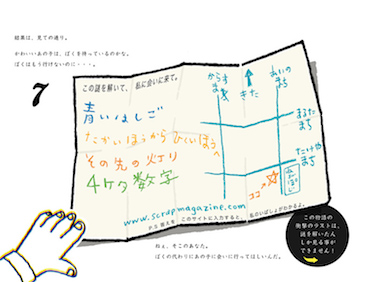 結果は、見ての通り。
かわいいあの子は、ぼくを待っているのかな。
ぼくはもう行けないのに・・・。
7
この謎を解いて、私に会いに来て。
青いはしご
たかいほうからひくいほうへ
その先の灯り
4ケタ数字
www.scrapmagazine.com
P.S 答えを、このサイトに入力すると、私のいばしょがわかるよ。
からすま
きた
あいのまち
まるたまち
たけやまち
ココ
ねぇ、そこのあなた。
ぼくの代わりにあの子に会いに行ってほしいんだ。
この物語の
衝撃のラストは、
謎を解いた人
しか見る事が
できません！